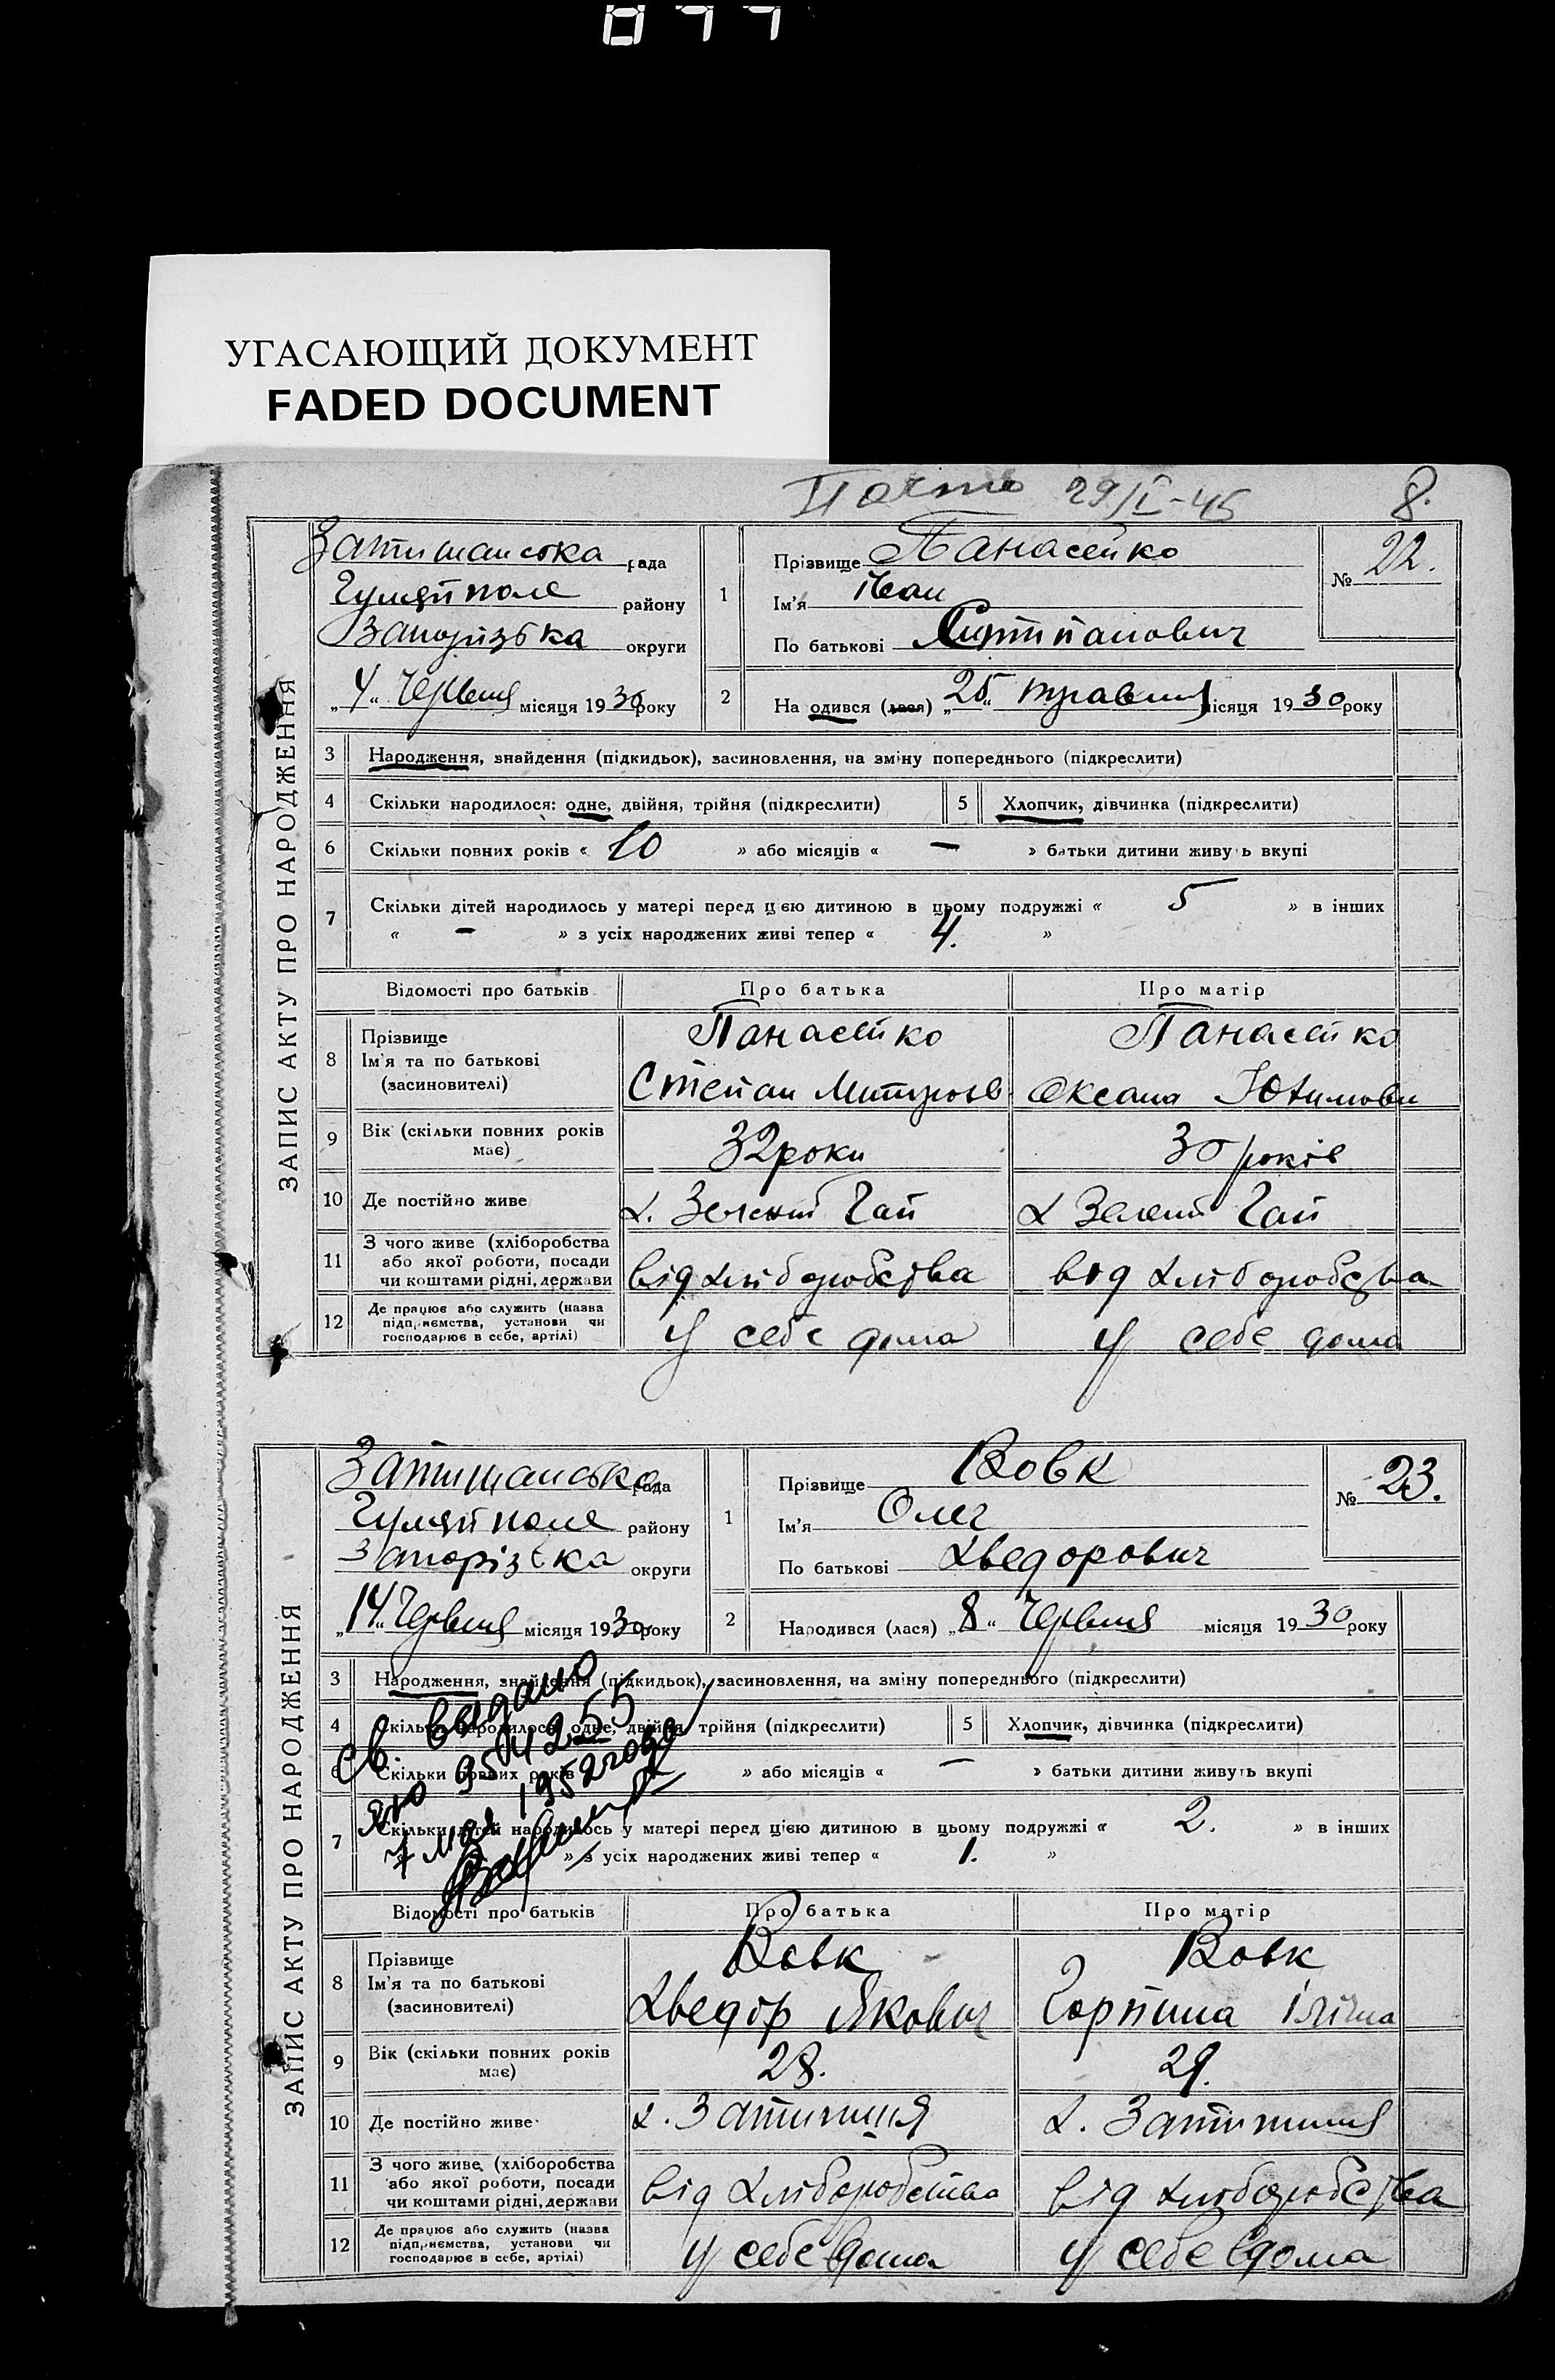 877
УГАСАЮЩИЙ ДОКУМЕНТ
FADED DOCUMENT
29/I-45
8.
ЗАПИС АКТУ ПРО НАРОДЖЕННЯ
Затишанська рада
Гуляйполе району
Запорізька округи
„4“ Червня місяця 1930 року
1
Прізвище Панасейко
Ім'я Іван
По батькові Степанович
№ 22.
2
На одився (лася) „25“ травня місяця 1930 року
3 Народження, знайдення (підкидьок), засиновлення, на зміну попереднього (підкреслити)
4 Скільки народилося: одне, двійня, трійня (підкреслити)
5 Хлопчик, дівчинка (підкреслити)
6 Скільки повних років « 10 » або місяців « — » батьки дитини живуть вкупі
7 Скільки дітей народилось у матері перед цією дитиною в цьому подружжі « 5 » в інших
« – » з усіх народжених живі тепер « 4. »
Відомості про батьків Про батька Про матір
8 Прізвище
Ім'я та по батькові
(засиновителі)
Панасейко
Степан
Панасейко
Оксана Юхимовн
9 Вік (скільки повних років
має)
32 роки
30 років
10 Де постійно живе
х. Зелений Гай
х Зелений Гай
11 З чого живе (хліборобства
або якої роботи, посади
чи коштами рідні, держави
від хліборобства
від хліборобства
12 Де працює або служить (назва
підприємства, установи чи
господарює в себе, артілі)
у себе дома
у себе дома
ЗАПИС АКТУ ПРО НАРОДЖЕННЯ
Затишанська рада
Гуляйполе району
Запорізька округи
„14“ Червня місяця 1930 року
1
Прізвище Вовк
Ім'я Олег
По батькові Хведорович
№ 23.
2
Народився (лася) „8“ Червня місяця 1930 року
3 Народження, знайдення (підкидьок), засиновлення, на зміну попереднього (підкреслити)
4 Скільки народилося: одне, двійня, трійня (підкреслити)
5 Хлопчик, дівчинка (підкреслити)
6 Скільки повних років » або місяців « — » батьки дитини живуть вкупі
7 Скільки дітей народилось у матері перед цією дитиною в цьому подружжі « 2. » в інших
» з усіх народжених живі тепер « 1. »
Св. выдано
954255
7 мая 1952 года
Відомості про батьків Про батька Про матір
8 Прізвище
Ім'я та по батькові
(засиновителі)
Вовк
Хведір Якович
Вовк
Горпина Ілічна
9 Вік (скільки повних років
має)
28.
29.
10 Де постійно живе
х. Затишшя
х. Затишшя
11 З чого живе (хліборобства
або якої роботи, посади
чи коштами рідні, держави
від хліборобства
від хліборобства
12 Де працює або служить (назва
підприємства, установи чи
господарює в себе, артілі)
у себе вдома
у себе вдома